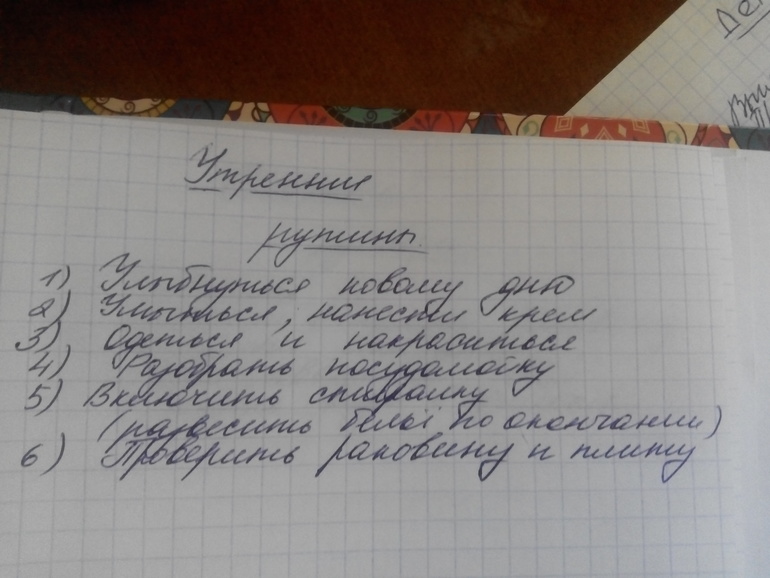 Утренние
рутины
1) Улыбнуться новому дню
2) Умыться, нанести крем
3) Одеться и накраситься
4) Разобрать посудомойку
5) Включить стиралку
(развесить бельё по окончании)
6) Проверить раковину и плиту